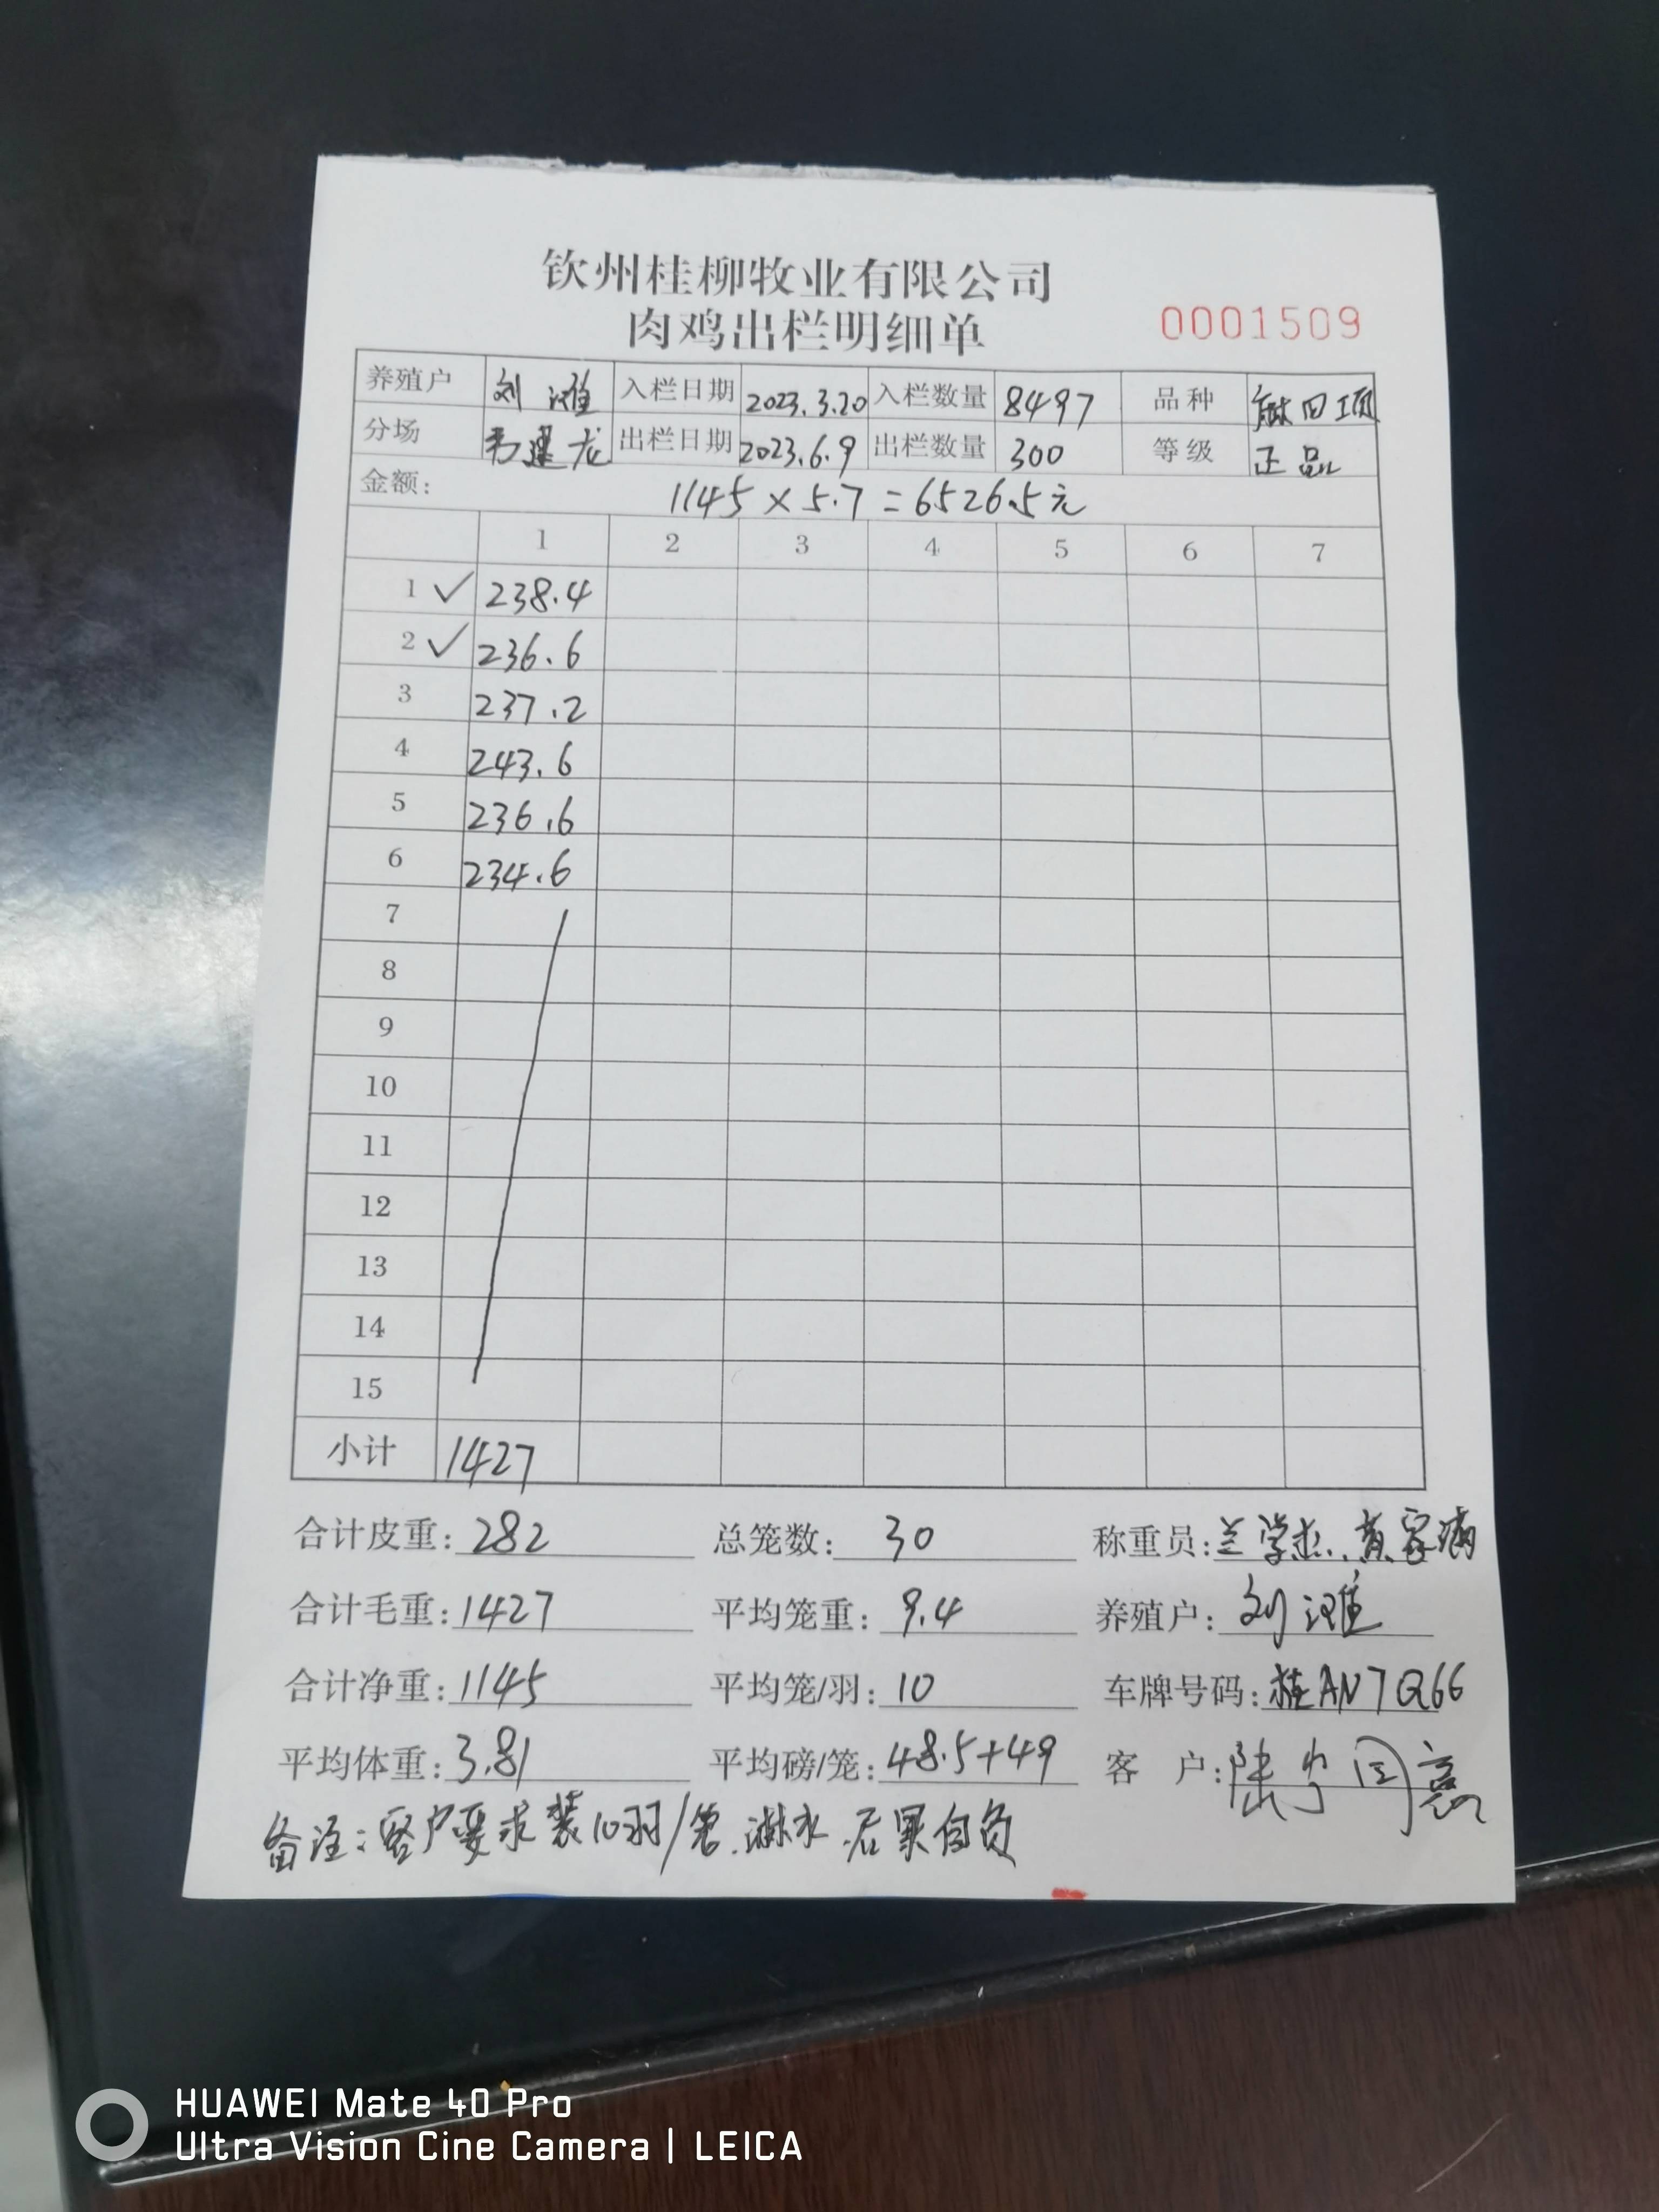 钦州桂柳牧业有限公司
肉鸡出栏明细单
0001509
养殖户 刘 滩 入栏日期 2023.3.20 入栏数量 8497 品种 项
分场 韦建龙 出栏日期 2023.6.9 出栏数量 300 等级 正品
金额: 1145 × 5.7 = 6526.5元
1 2 3 4 5 6 7
1 ✓ 238.4
2 ✓ 236.6
3 237.2
4 243.6
5 236.6
6 234.6
7
8
9
10
11
12
13
14
15
小计 1427
合计皮重: 282 总笼数: 30 称重员: 兰学杰、黄家满
合计毛重: 1427 平均笼重: 9.4 养殖户: 刘 滩
合计净重: 1145 平均笼/羽: 10 车牌号码: 桂AN7Q66
平均体重: 3.81 平均磅/笼: 48.5+49 客 户: 陆 同意
备注: 客户要求装10羽/笼.淋水.后果自负
HUAWEI Mate 40 Pro
Ultra Vision Cine Camera | LEICA